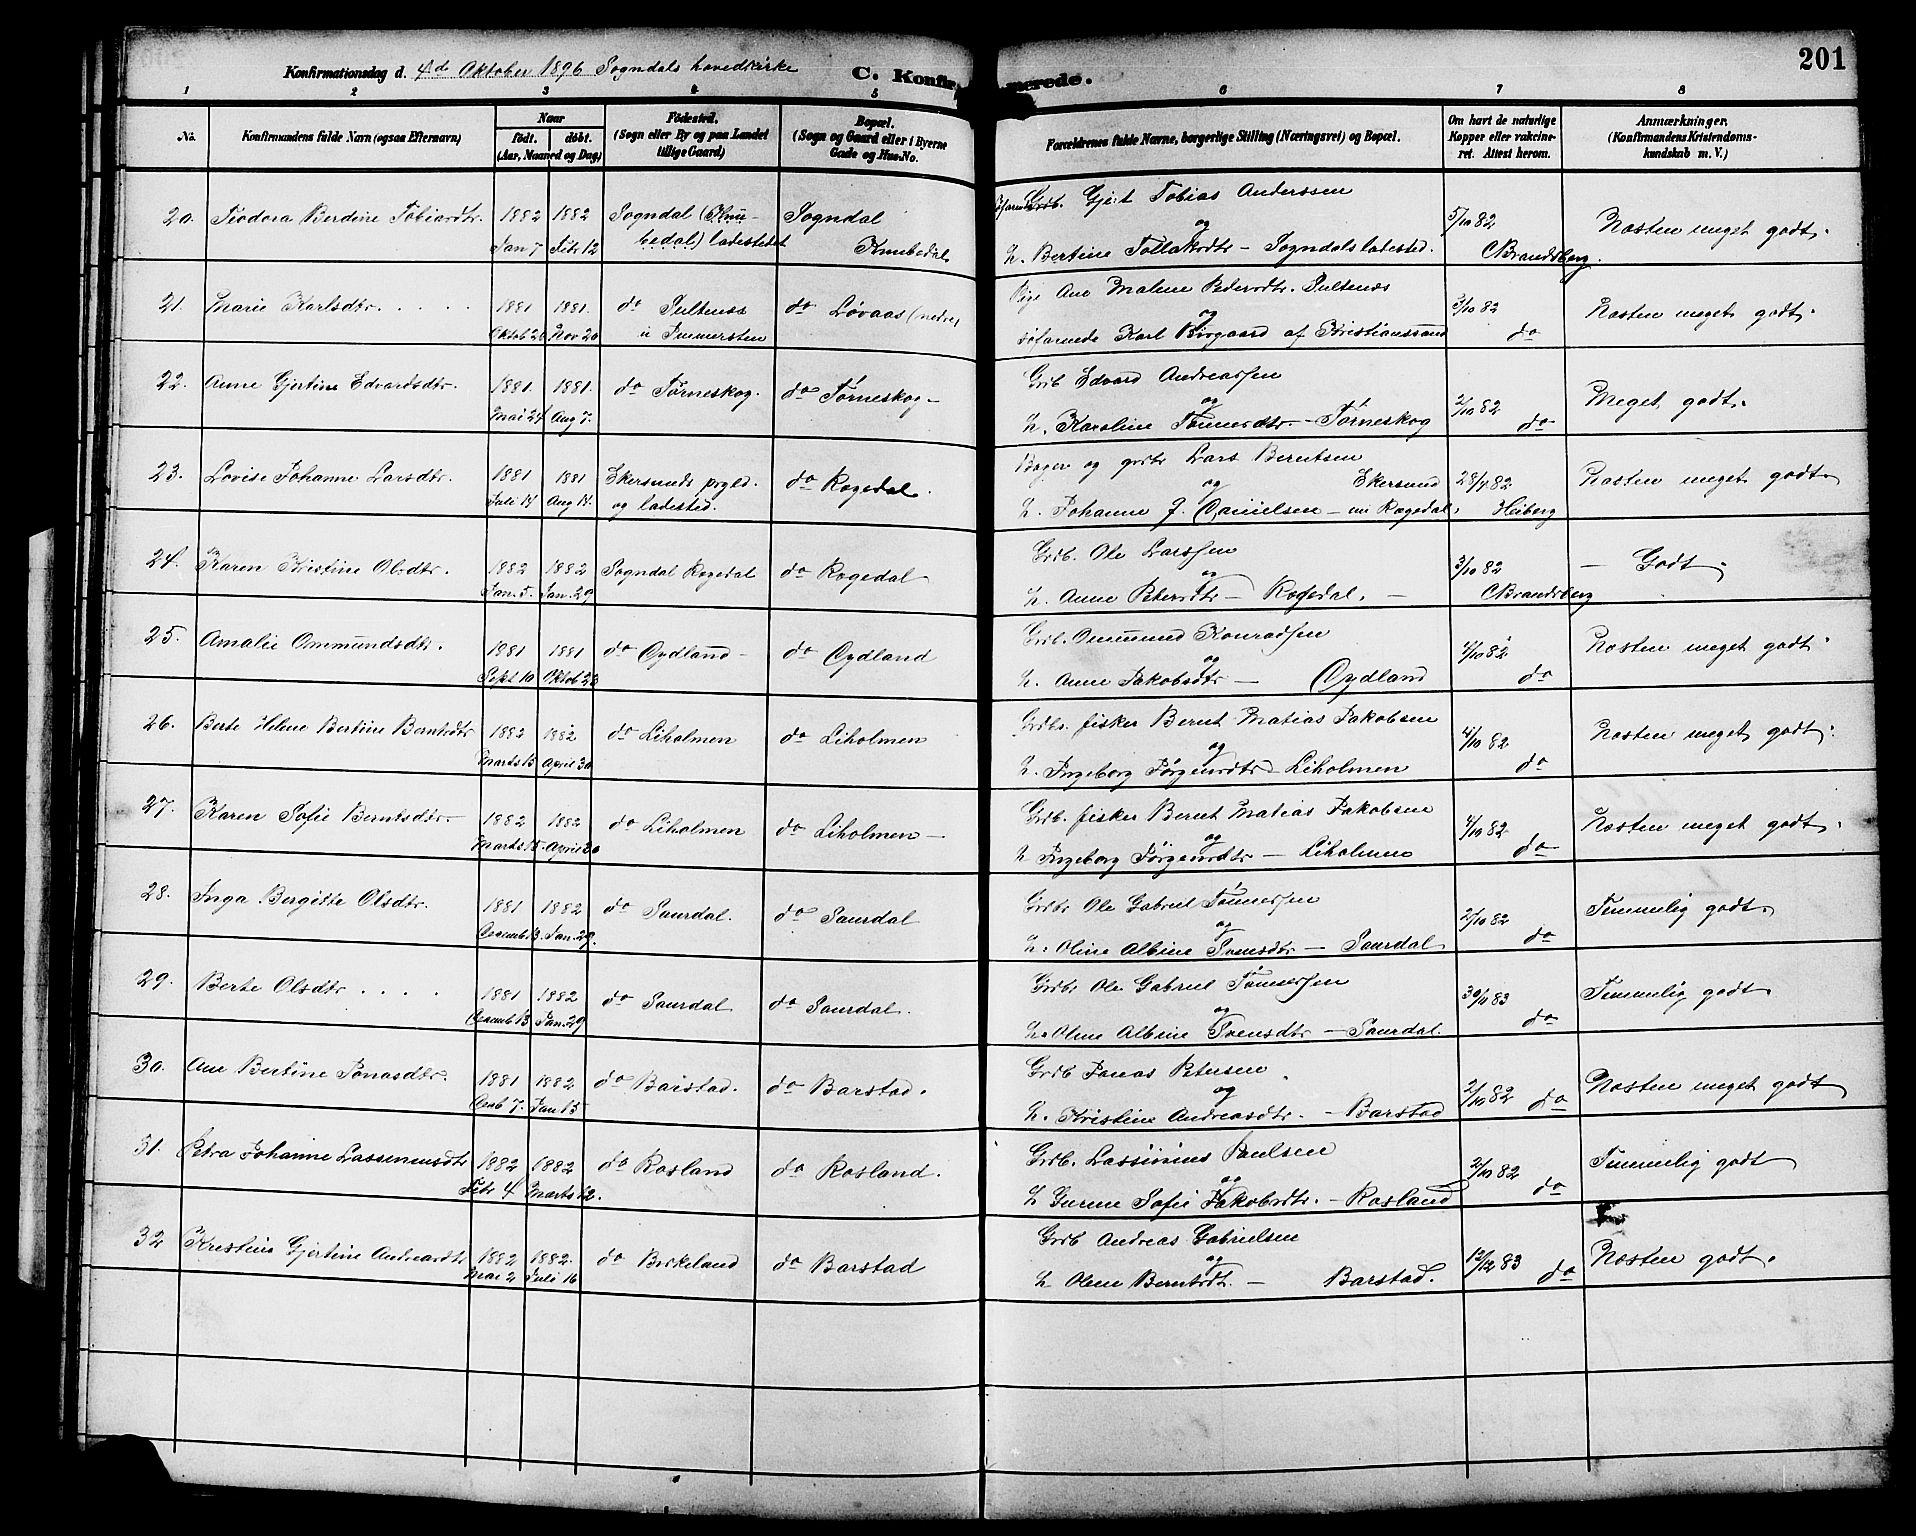 201
Konfirmationsdag d. 4de Oktober 1896 Sogndals hovedkirke C. Konfirmerede.
1 2 3 4 5 6 7 8
No. Konfirmandens fulde Navn (ogsaa Efternavn) Naar født. døbt. (Aar, Maaned og Dag) Fødested. (Sogn eller By og paa Landet tillige Gaard) Bopæl. (Sogn og Gaard eller i Byerne Gade og Hus-No. Forældrenes fulde Navne, borgerlige Stilling (Næringsvei) og Bopæl. Om havt de naturlige Kopper eller vakcineret. Attest herom. Anmærkninger. (Konfirmandens Kristendomskundskab m. V.)
20. Teodora Berdine Tobiasdtr. 1882 1882 Sogndal (Knu- Sogndal Grdb. Gjert Tobias Anderssen 5/10 82 Næsten meget godt.
Jan 7 Febr 12 bedal) ladestedet Knubedal og
h. Bertine Tollaksdtr - Sogndals ladested. CBrandsberg.
21. Marie Karlsdtr. . . . . 1881 1881. do Sultenæs do Løvaas (nedre) Pige Ane Malene Pedersdtr. Sultenæs 3/10 82 Næsten meget godt.
Oktob 20 Nov 20 u Immersten og
søfarende Karl Birgaard af Kristianssand do
22. Anne Gjertine Edvardsdtr. 1881 1881. do Tørneskog. do Tørneskog - Grdb Edvard Andreassen 2/10 82 Meget godt.
Mai 24 Aug 7. og
h. Karoline Tønnesdtr. - Tørneskog do
23. Lovise Johanne Larsdtr. 1881 1881 Ekersunds prgld. do Rogedal. Bager og grdb Lars Berntsen 28/1 82 Næsten meget godt
Juli 14 Aug 14. og ladested. og Ekersund
h. Johanne J. Danielsen - nu Rogedal. Heiberg
24. Karen Kristine Olsdtr. 1882 1882 Sogndal Rogedal do Rogedal - Grdb. Ole Larssen 3/10 82 - Godt.
Jan. 5. Jan. 29 og
h. Anne Petersdtr - Rogedal. - CBrandsberg
25. Amalie Ommundsdtr. 1981 1881 do Eydland - do Eydland Grdb. Ommund Konradsen 4/10 82 Næsten meget godt
Sept 10 Oktob 23 og
h. Anne Jakobsdtr - Eydland do
26. Berte Helene Bertine Berntsdtr 1882 1882 do Liholmen do Liholmen Grdbr. fisker Bernt Matias Jakobsen 4/10 82 Næsten meget godt.
Marts 15 April 30 og
h. Ingeborg Jørgensdtr - Liholmen do
27. Karen Sofie Berntsdtr - 1882 1882 do Liholmen do Liholmen - Grdb. fisker Bernt Matias Jakobsen 4/10 82 Næsten meget godt.
Marts 15. April 30 og
h Ingeborg Jørgensdtr - Liholmen do
28. Inga Bergitte Olsdtr. 1881 1882 do Saurdal. do Saurdal Grdbr Ole Gabriel Tønnessen 2/10 82 Temmelig godt.
Decemb 13. Jan. 29. og
h. Oline Albine Svensdtr - Saurdal do
29. Berte Olsdtr . . . . 1881 1882 do Saurdal do Saurdal. Grdbr Ole Gabriel Tønnessen 30/1 83 Temmelig godt
Decemb 13 Jan. 29 og
h. Oline Albine Svensdtr - Saurdal. do
30. Ane Bertine Jonasdtr. 1881 1882 do Barstad. do Barstad. Grdb Jonas Petersen 2/10 82 do Næsten meget godt
Decb 7. Jan 15 og
h. Kristine Andreasdtr. - Barstad
31. Petra Johanne Lasseniusdtr 1882 1882 do Rosland do Rosland. Grdb. Lassinius Paulsen 2/10 82 Temmelig godt
Febr 4 Marts 12. og
h Gurine Sofie Jakobsdtr. - Rosland do
32 Kristine Gjertine Andreasdtr 1882 1882. do Birkeland do Barstad Grdb Andreas Gabrielsen 12/12 83 do Næsten godt.
Mai 2 Juli 16 og
h Oline Berntsdtr. - Barstad.